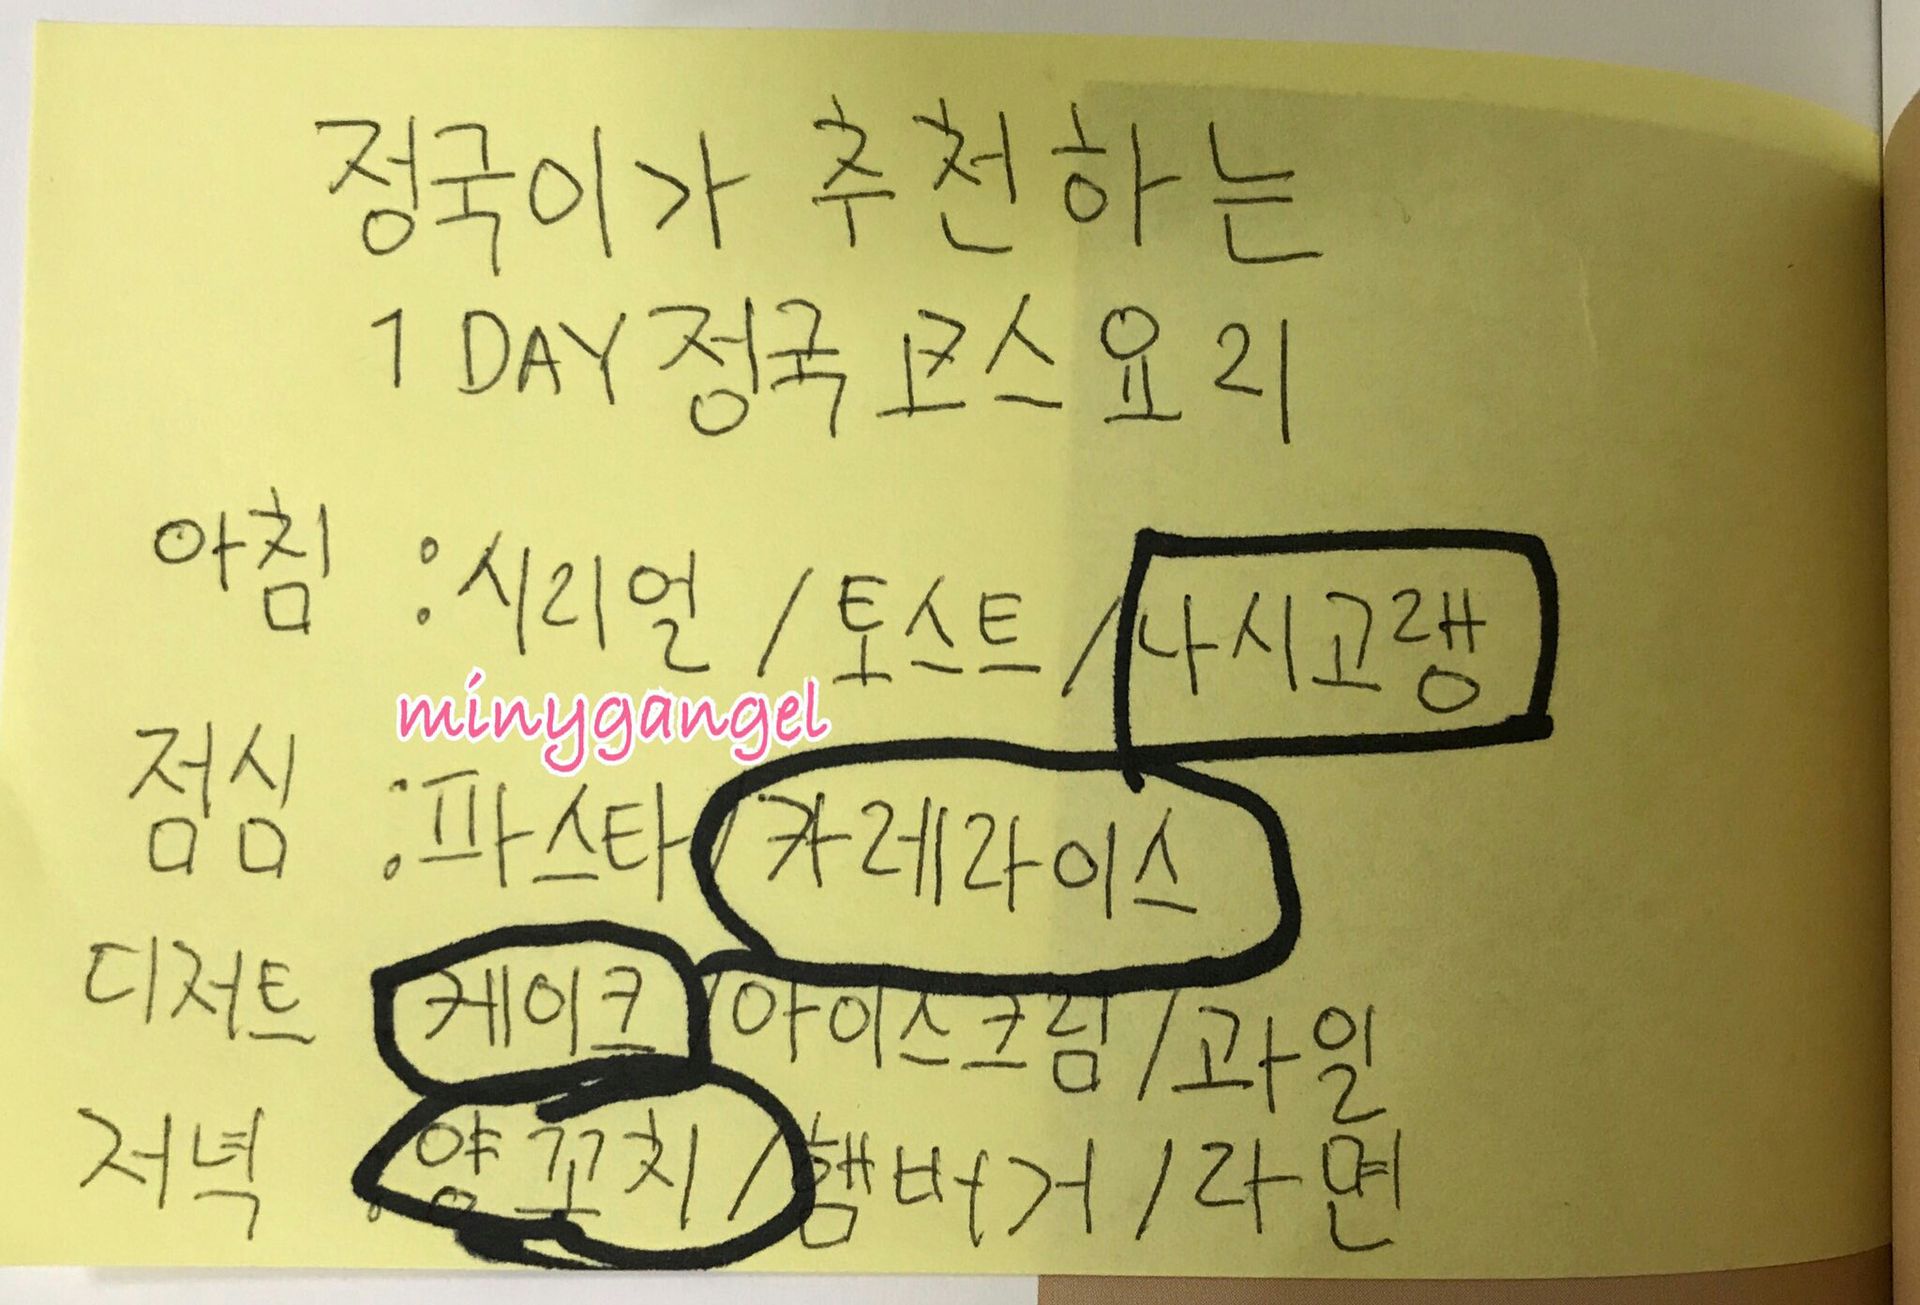 정국이가 추천하는
1 DAY 정국 코스요리
아침 : 시리얼 / 토스트 / 나시고랭
minygangel
점심 : 파스타 / 카레라이스
디저트 케이크 / 아이스크림 / 과일
저녁 : 양꼬치 / 햄버거 / 라면